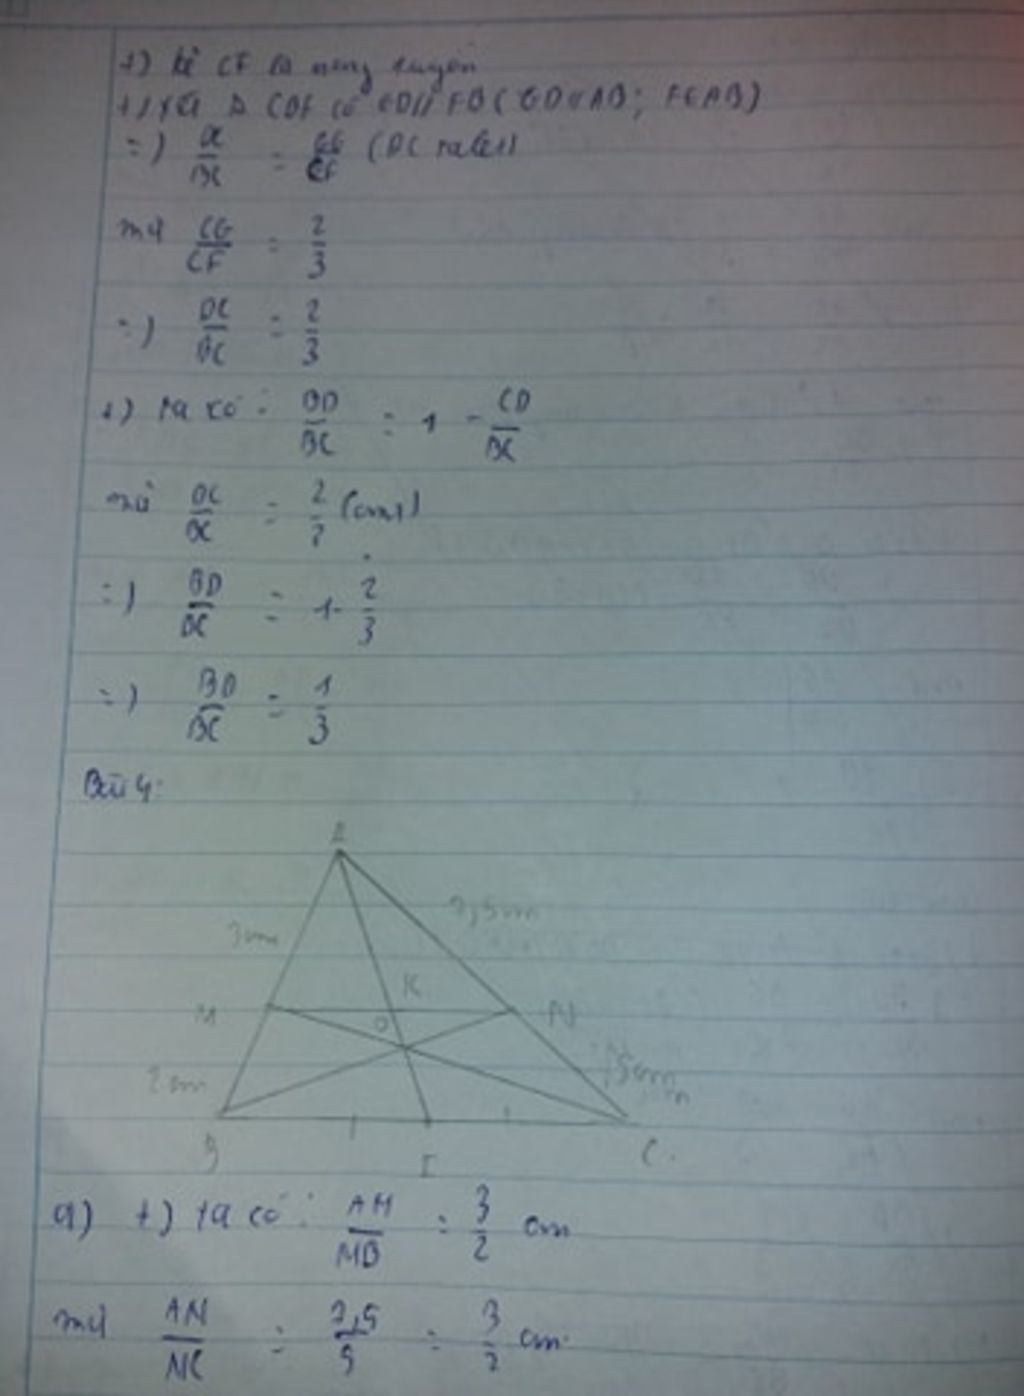 +) kẻ CF là trung tuyến
+) xét Δ CBF có GD // FB ( GD // AB ; F ∈ AB )
=) DC/BC = CG/CF (ĐL talet)
mà CG/CF = 2/3
=) DC/BC = 2/3
+) ta có : BD/BC = 1 - CD/BC
mà DC/BC = 2/3 (cmt)
=) BD/BC = 1 - 2/3
=) BD/BC = 1/3
Bài 4:
A
3cm 7,5cm
K
M O N
2cm 5cm
B I C
a) +) ta có : AM/MB = 3/2 cm
mà AN/NC = 7,5/5 = 3/2 cm